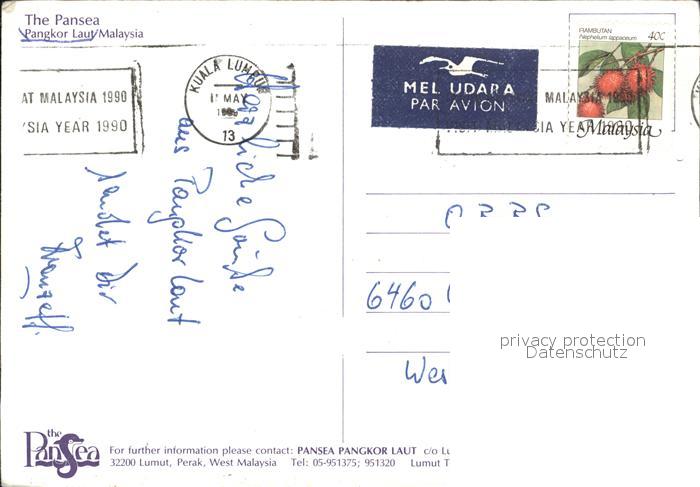 The Pansea
Pangkor Laut/Malaysia
AT MALAYSIA 1990
SIA YEAR 1990
KUALA LUMPUR
11 MAY
13
MEL UDARA
PAR AVION
RAMBUTAN
Nephelium lappaceum
40c
Malaysia
MALAYSIA 1990
SIA YEAR 1990
Herzliche Grüße
aus Pangkor Laut
sendet dir
6460
Wes
privacy protection
Datenschutz
the
PanSea
For further information please contact: PANSEA PANGKOR LAUT c/o Lu
32200 Lumut, Perak, West Malaysia Tel: 05-951375; 951320 Lumut T